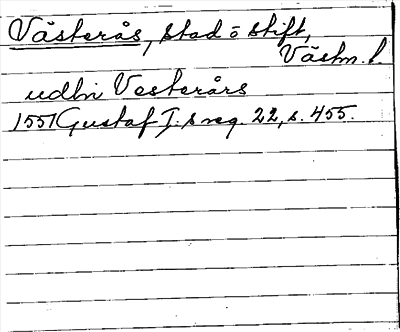 Västerås, stad o stift,
Västm. l.
Vesterårs
1551 Gustaf I:s reg. 22, s. 455.